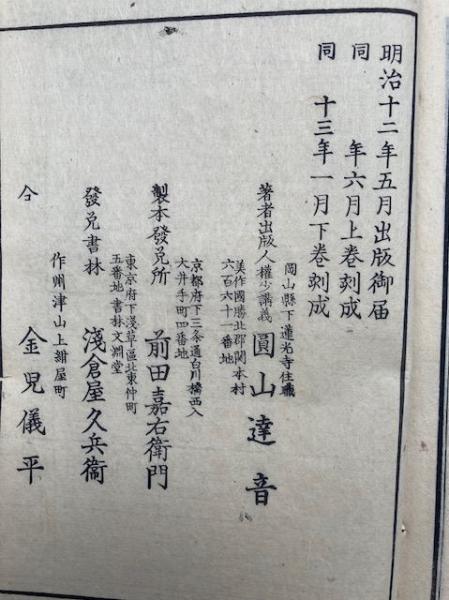 明治十二年五月出版御届
同　年六月上巻刻成
同　十三年一月下巻刻成
岡山縣下蓮光寺住職
著者出版人權少講義　圓山達音
美作國勝北郡関本村
六百六十一番地
京都府下三条通白川橋西入
大井手町四番地
製本發兌所　前田嘉右衛門
東京府下淺草區北東仲町
五番地書林文淵堂
發兌書林　淺倉屋久兵衞
作州津山上紺屋町
仝　金児儀平